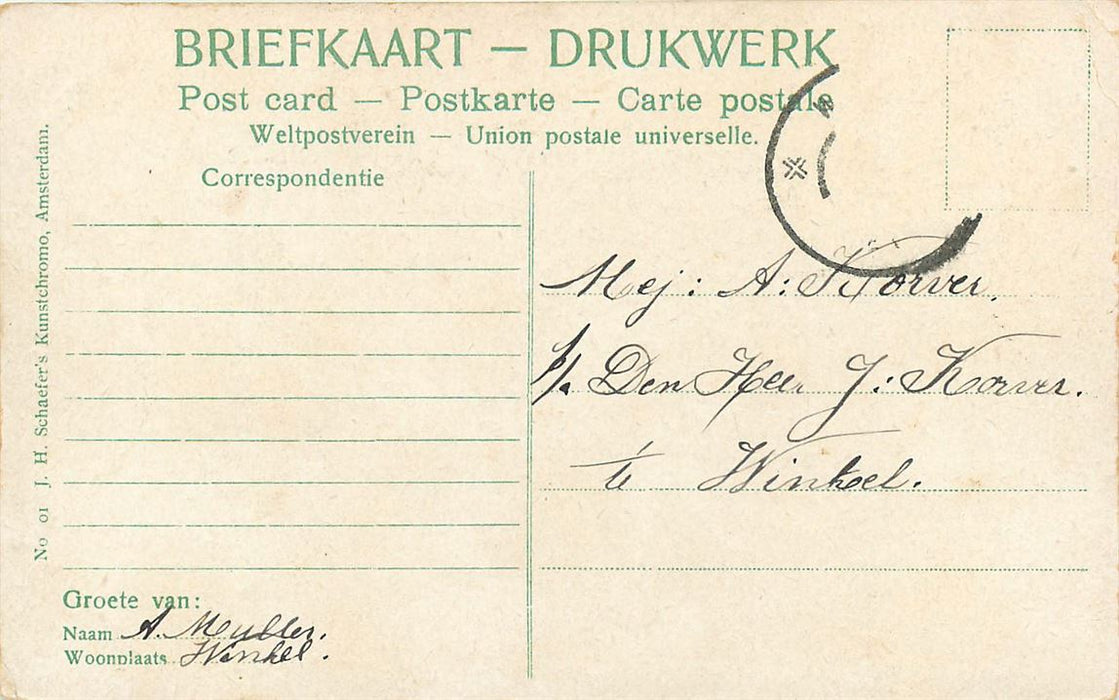 BRIEFKAART — DRUKWERK
Post card — Postkarte — Carte postale
Weltpostverein — Union postale universelle.
Correspondentie
No 01 J. H. Schaefer's Kunstchromo, Amsterdam.
Mej: A: Korver.
p/a Den Heer J: Korver.
te Winkel.
Groete van:
Naam A. Muller.
Woonplaats Winkel.